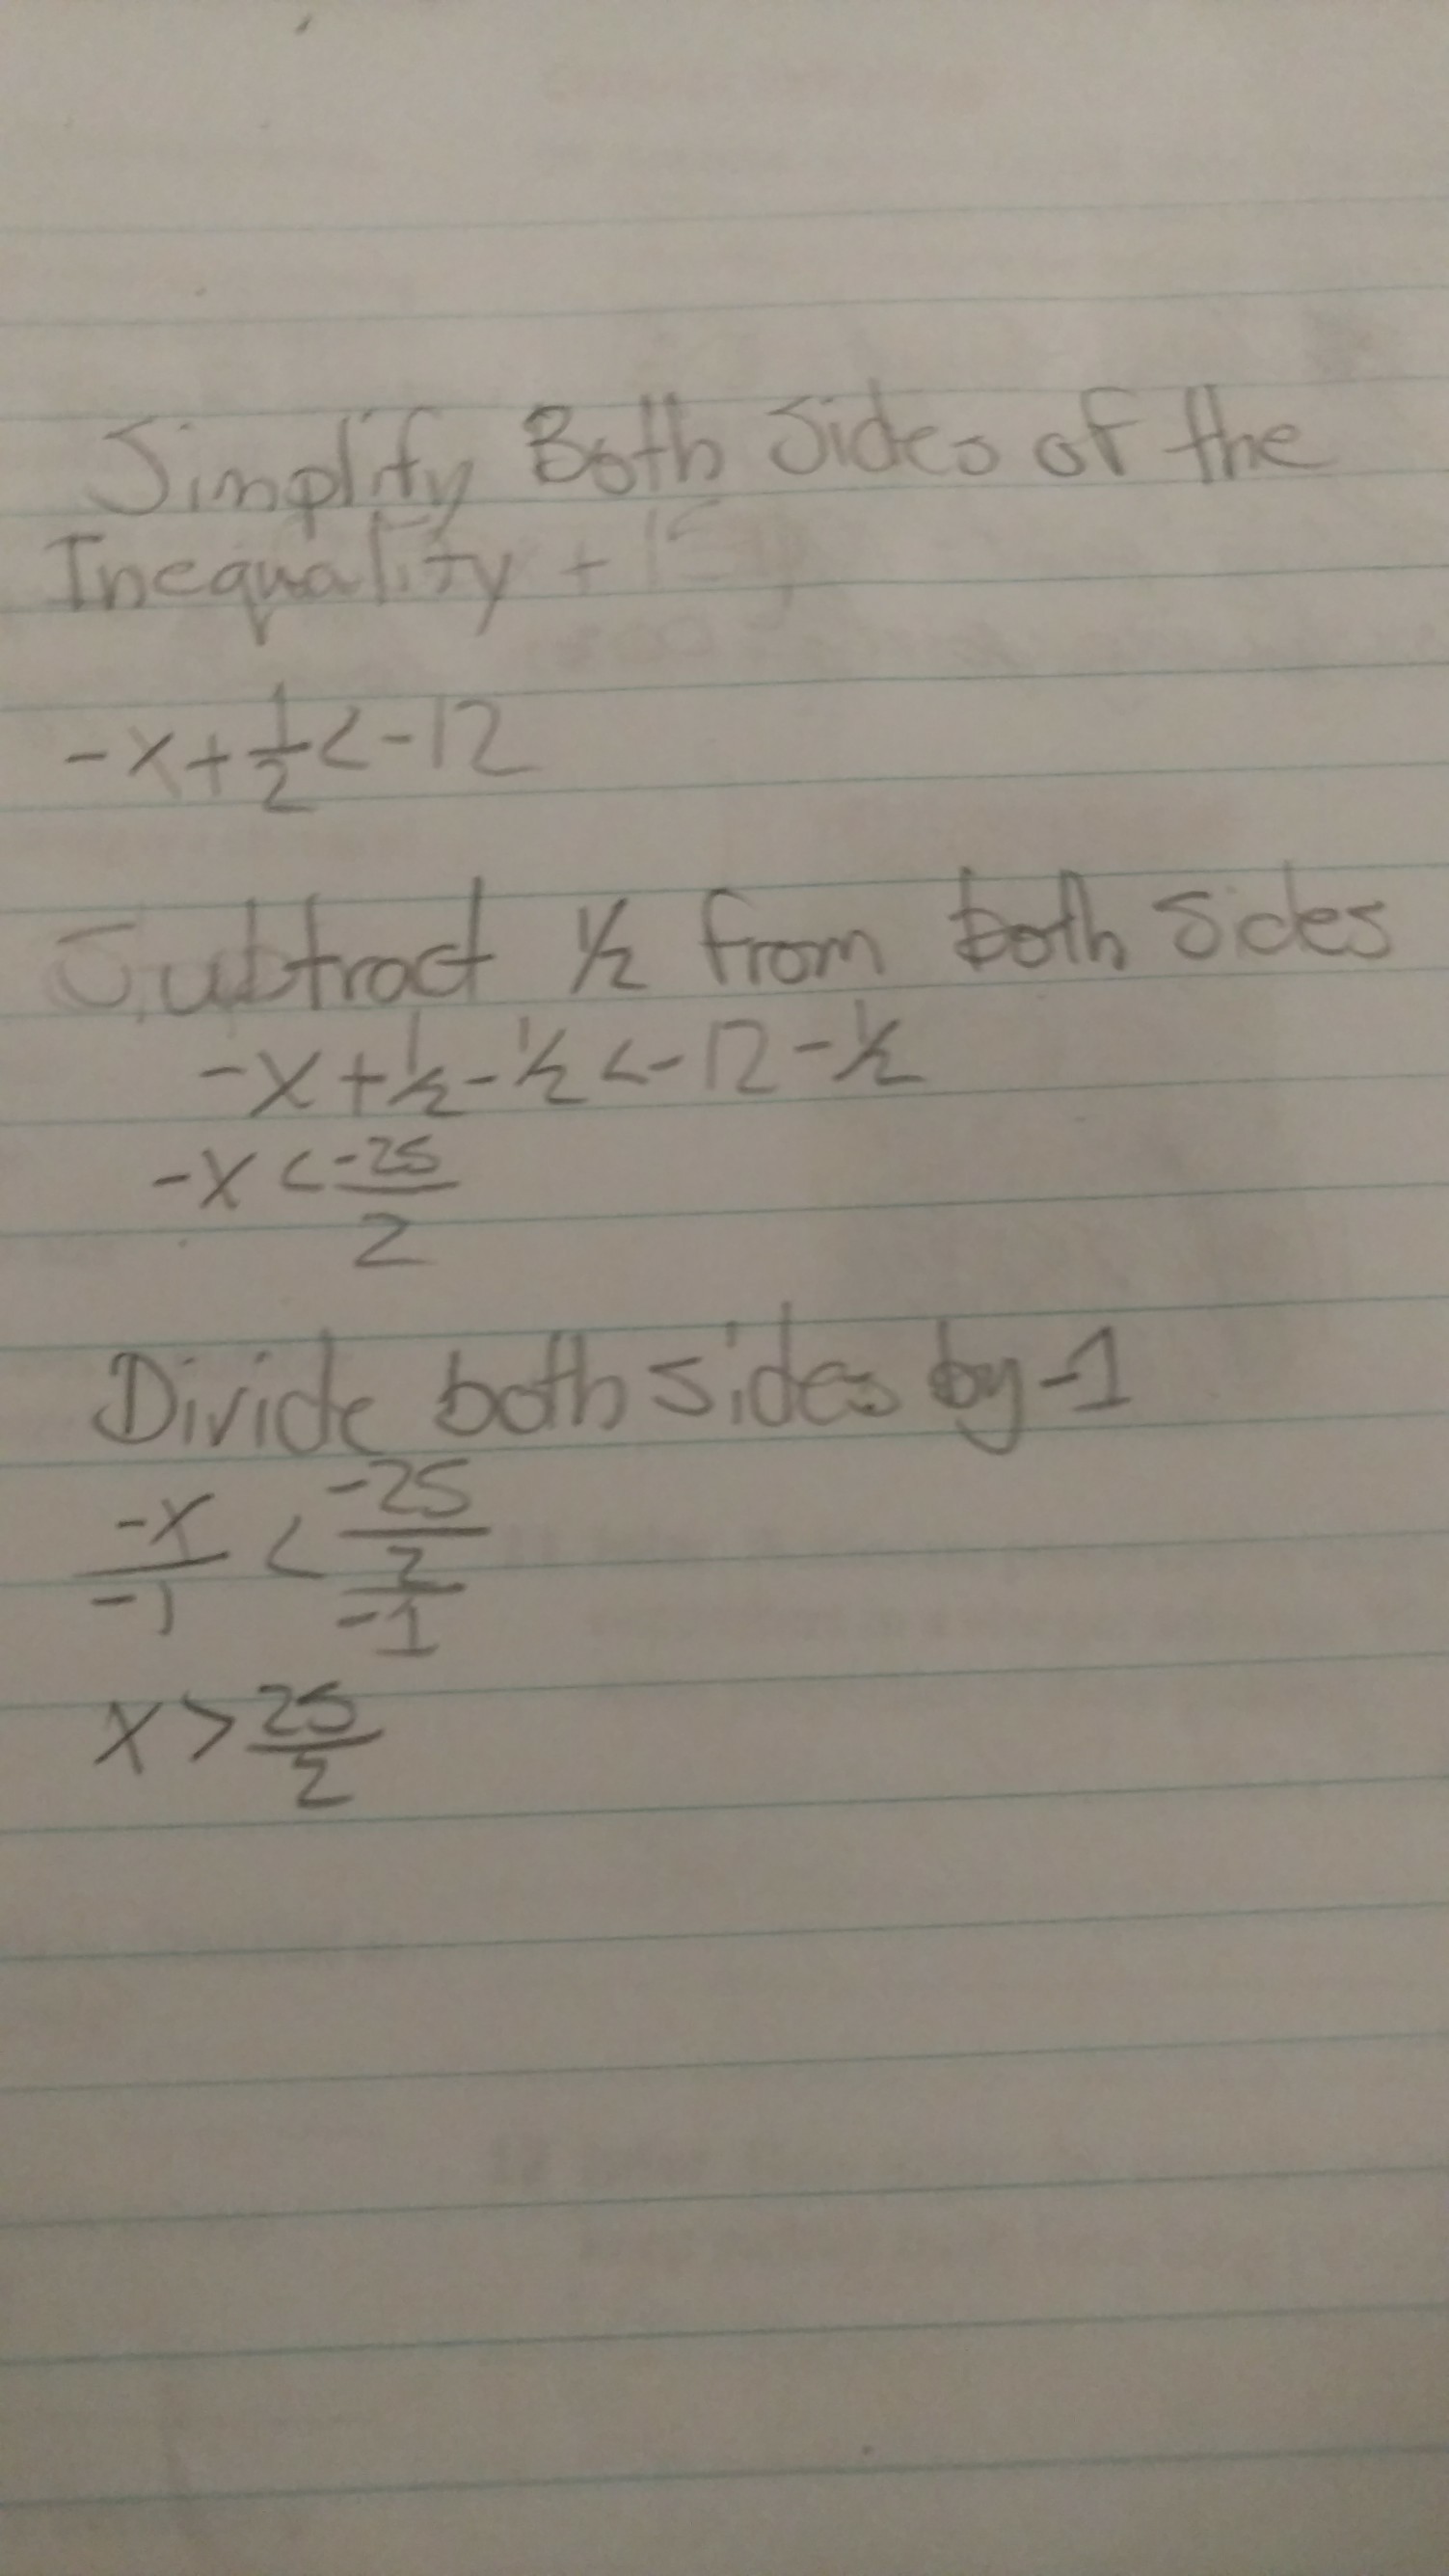 Simplify Both Sides of the
Inequality +
-x+1/2<-12
Subtract 1/2 from both sides
-x+1/2-1/2<-12-1/2
-x<-25/2
Divide both sides by -1
-x/-1 < -25/2/-1
x>25/2